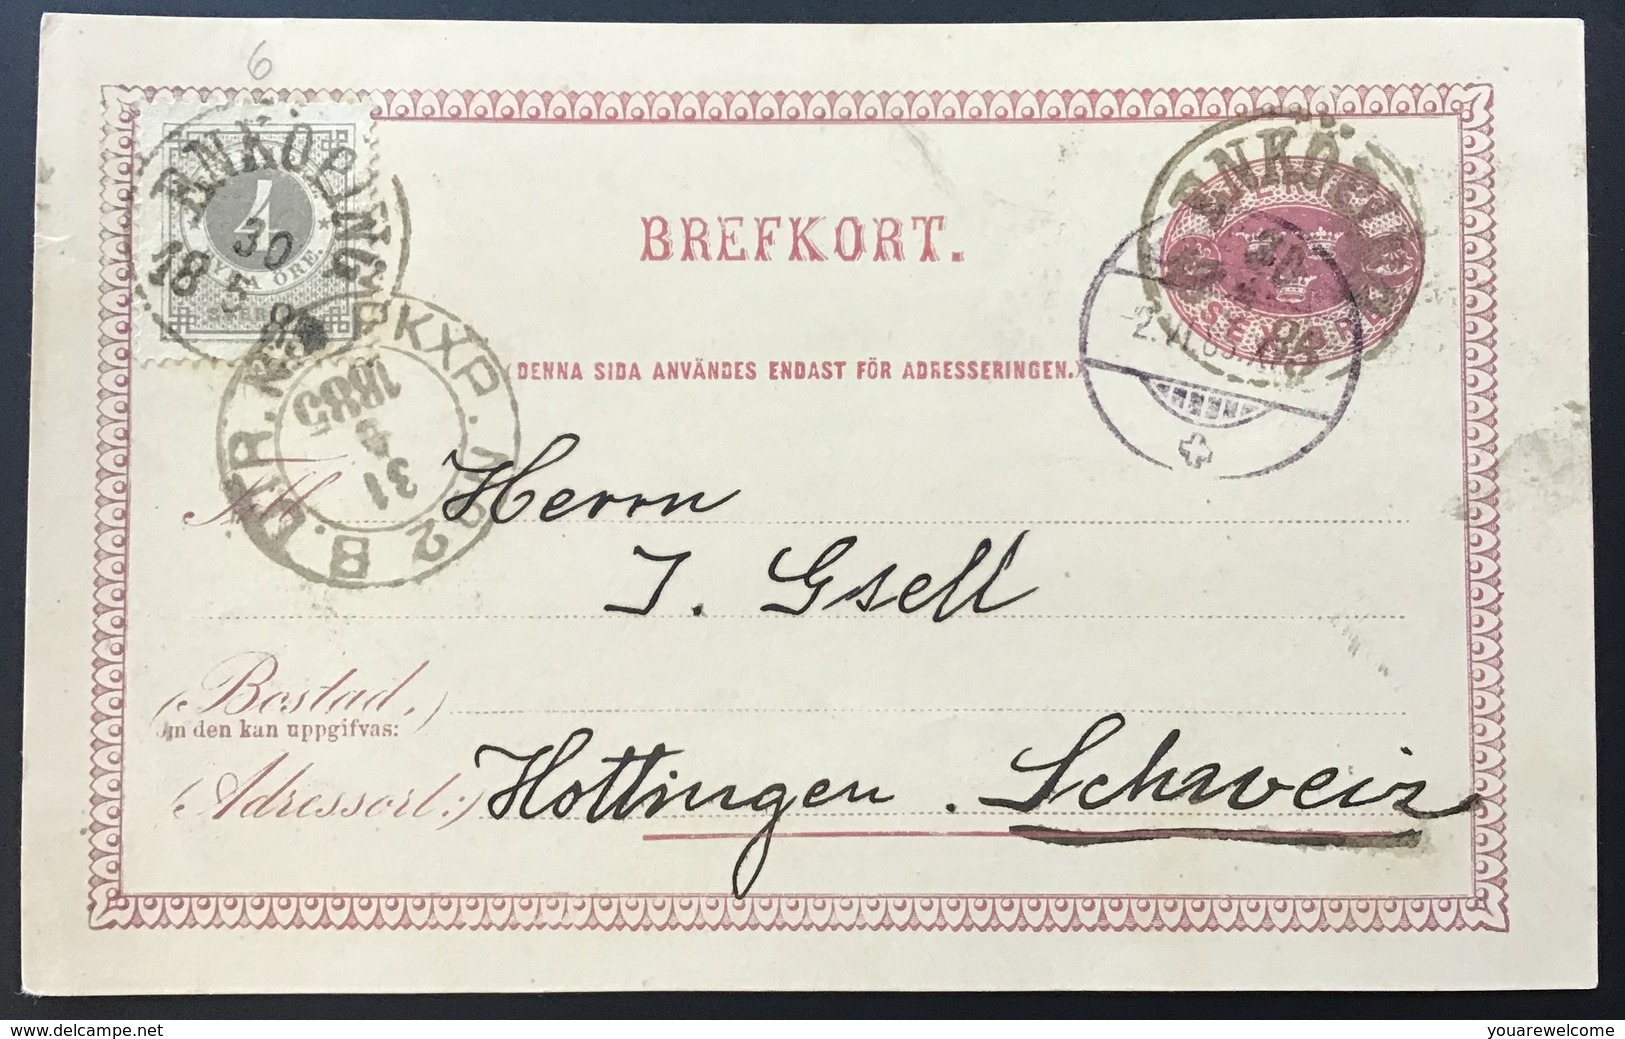 6
ENKÖPING
30
18 5 85
4
ÖRE.
BREFKORT.
ENKÖPING
30
5
85
SEX ÖRE
2. VI. 85.
(DENNA SIDA ANVÄNDES ENDAST FÖR ADRESSERINGEN.)
PKXP. Nº 2 B. UTR.
31
5
1885
Till Herrn
J. Gsell
(Bostad,)
om den kan uppgifvas:
(Adressort:) Hottingen. Schweiz
delcampe.net
youarewelcome